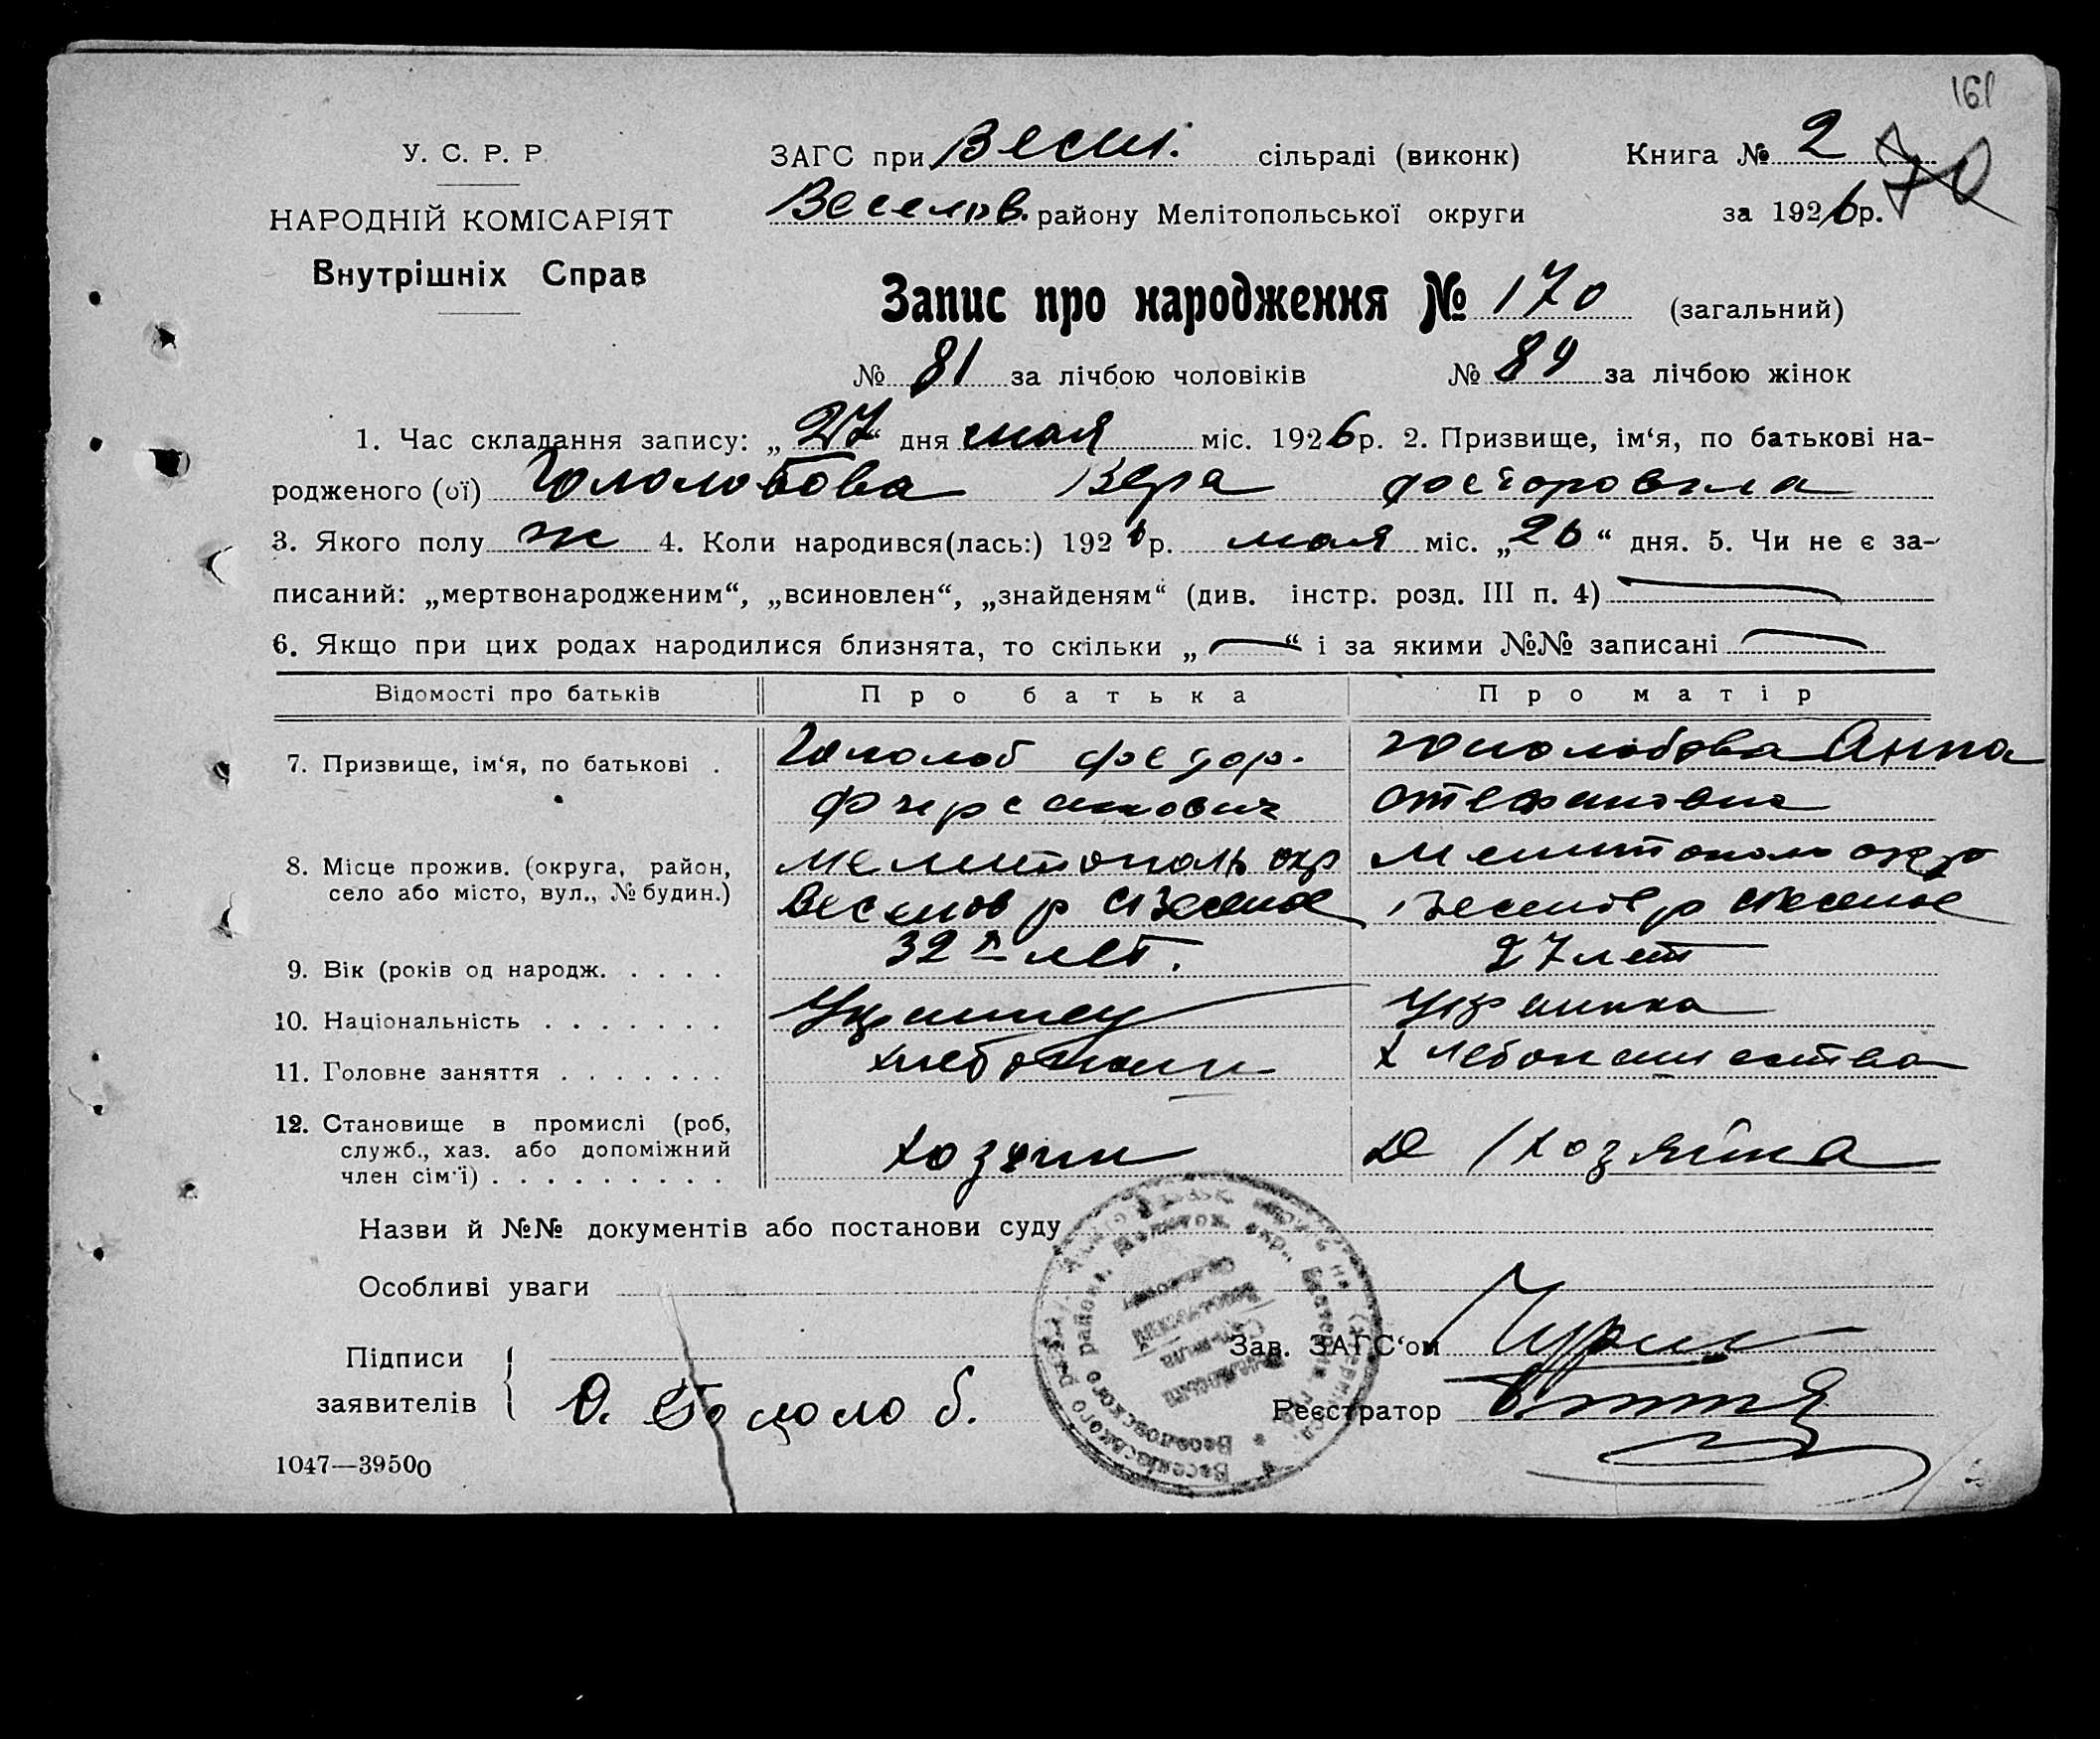 161
У. С. Р. Р.
НАРОДНІЙ КОМІСАРІЯТ
Внутрішніх Справ
ЗАГС при Весел. сільраді (виконк)
Книга № 2
70
Веселов. району Мелітопольської округи
за 1926 р.
Запис про народження № 170 (загальний)
№ 81 за лічбою чоловіків № 89 за лічбою жінок
1. Час складання запису: „27“ дня мая міс. 1926 р. 2. Призвище, ім‘я, по батькові на-
родженого (ої) Гололобова Вера Федоровна
3. Якого полу ж 4. Коли народився(лась:) 1926 р. мая міс. „26“ дня. 5. Чи не є за-
писаний: „мертвонародженим“, „всиновлен“, „знайденям“ (див. інстр. розд. III п. 4)
6. Якщо при цих родах народилися близнята, то скільки „—“ і за якими №№ записані —
Відомості про батьків Про батька Про матір
7. Призвище, ім‘я, по батькові . Гололоб Федор. Гололобова Анна
Стефановна
8. Місце прожив. (округа, район, Мелитополь окр Мелитополь окр
село або місто, вул., № будин.) Веселов р с Веселое Веселов р с Веселое
9. Вік (років од народж. . . . . 32 лет. 27 лет
10. Національність . . . . . . . Украинец Украинка
11. Головне заняття . . . . . . . хлебопаш хлебопашества
12. Становище в промислі (роб,
служб., хаз. або допоміжний хозяин Д/хозяйка
член сім‘ї) . . . . . . . . .
Назви й №№ документів або постанови суду
Особливі уваги
Підписи
заявителів
Ѳ. Гололоб.
Зав. ЗАГС‘ом
Реєстратор
1047—39500